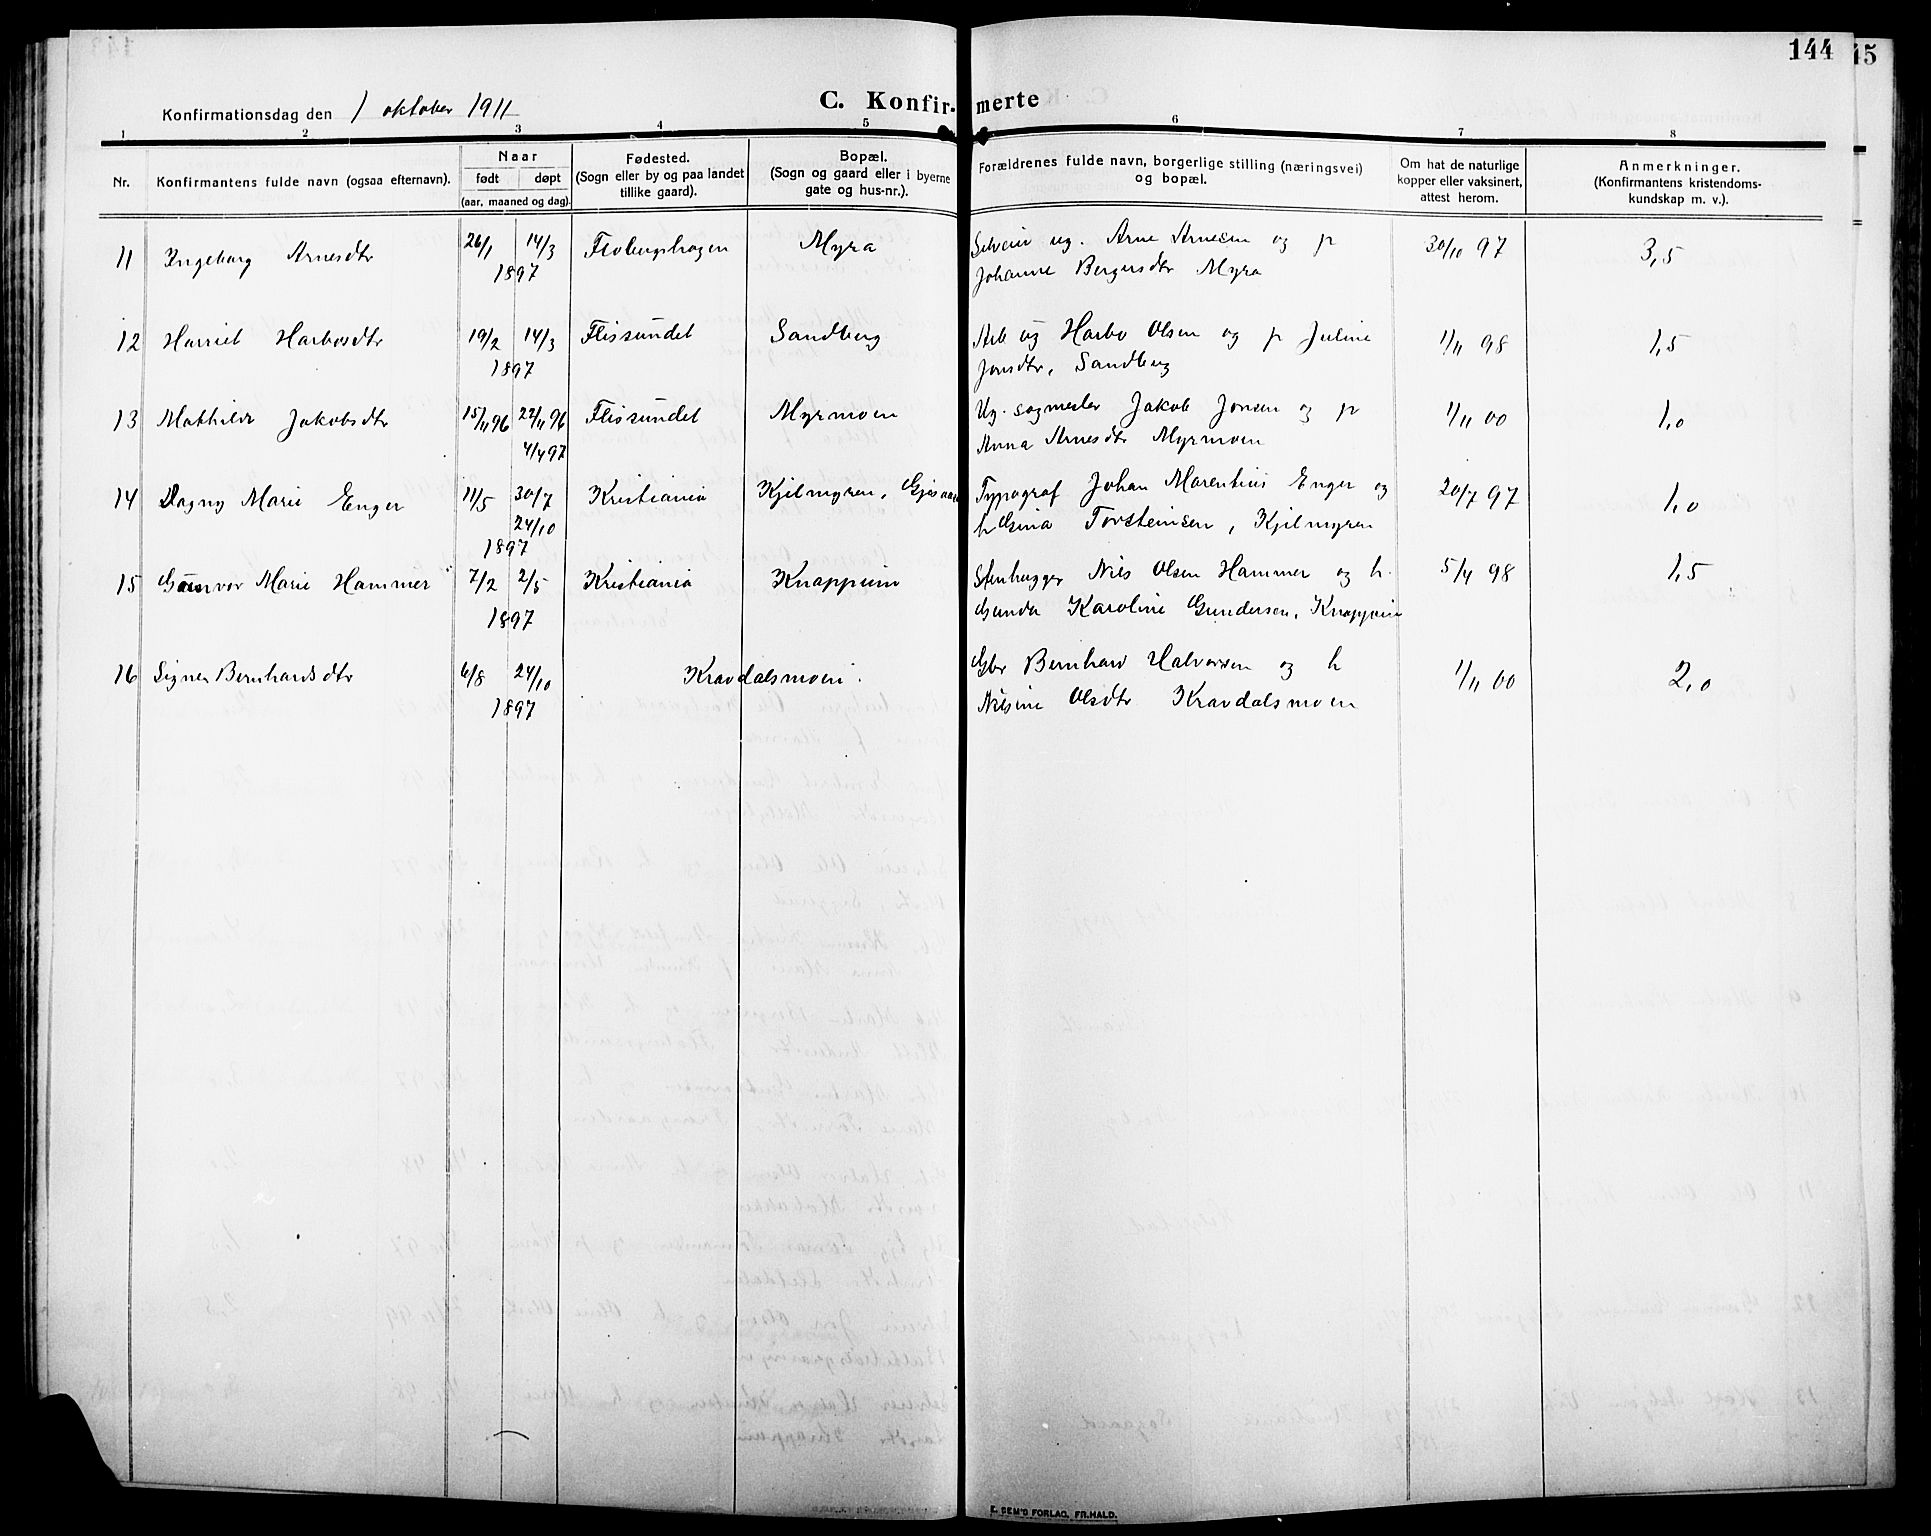 144
45
Konfirmationsdag den 1 oktober 1911
C. Konfir-merte
1 2 3 4 5 6 7 8
Nr.
Konfirmantens fulde navn (ogsaa efternavn).
Naar
født døpt
(aar, maaned og dag).
Fødested.
(Sogn eller by og paa landet
tillike gaard).
Bopæl.
(Sogn og gaard eller i byerne
gate og hus-nr.).
Forældrenes fulde navn, borgerlige stilling (næringsvei)
og bopæl.
Om hat de naturlige
kopper eller vaksinert,
attest herom.
Anmerkninger.
(Konfirmantens kristendoms-
kundskap m. v.).
11 Ingeborg Arnesdtr 26/1 14/3 Flobergshagen Myra Selveier ug. Arne Arnesen og p 30/10 97 3,5
1897 Johanne Bergersdtr Myra
12 Harriet Harbosdtr 19/2 14/3 Flissundet Sandberg Arb ug Harbo Olsen og p Juline 1/11 98 1,5
1897 Jonsdtr, Sandberg
13 Mathilde Jakobsdtr 15/11 96 22/11 96 Flissundet Myrmoen Ug. sagmester Jakob Jonsen og p 1/11 00 1,0
4/4 97 Anna Arnesdtr Myrmoen
14 Dagny Marie Enger 11/5 30/7 Kristiania Kjilmyren, Typograf Johan Marentius Enger og 20/7 97 1,0
24/10 h Gina Torsteinsen, Kjilmyren
1897
15 Gunvor Marie Hammer 7/2 2/5 Kristiania Knappum Stenhugger Nils Olsen Hammer og h. 5/4 98 1,5
1897 Gunda Karoline Gundersen, Knappum
16 Signe Bernhardsdtr 6/8 24/10 Kravdalsmoen. Gbr Bernhard Halvorsen og h 1/11 00 2,0
1897 Nilsine Olsdtr Kravdalsmoen
E. SEM'S FORLAG, FR.HALD.